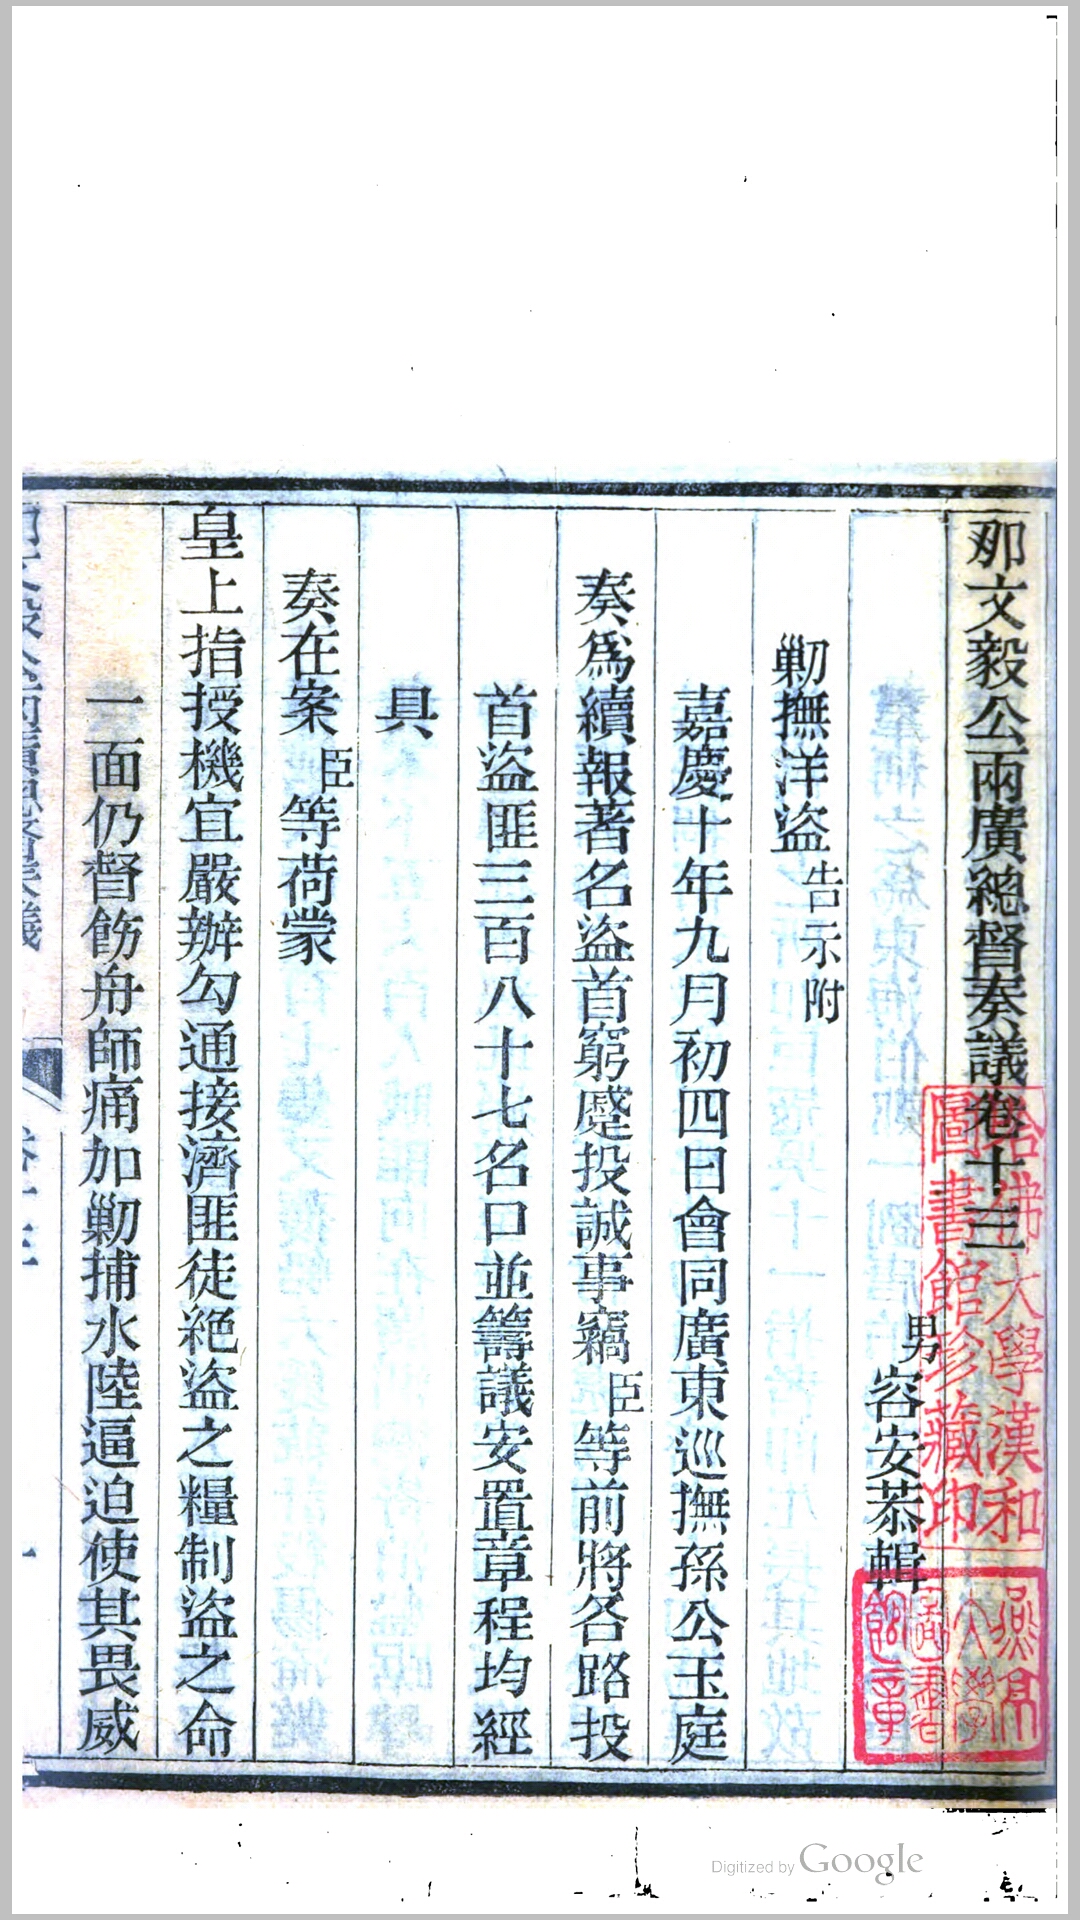 那文毅公兩廣總督奏議卷十三
男 容安恭輯
剿撫洋盜告示附
嘉慶十年九月初四日會同廣東巡撫孫公玉庭
奏爲續報著名盜首窮蹙投誠事竊臣等前將各路投
首盜匪三百八十七名口並籌議安置章程均經
具
奏在案臣等荷蒙
皇上指授機宜嚴辦勾通接濟匪徒絕盜之糧制盜之命
一面仍督飭舟師痛加剿捕水陸逼迫使其畏威
哈佛大學漢和
圖書館珍藏印
Digitized by Google